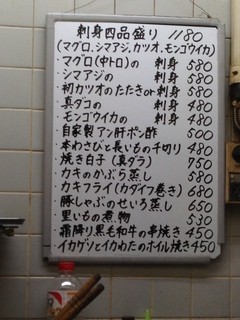 刺身四品盛り 1180
(マグロ、シマアジ、カツオ、モンゴウイカ)
・マグロ(中トロ)の 刺身 580
・シマアジの 刺身 580
・初カツオのたたきor刺身 580
・真ダコの 刺身 480
・モンゴウイカの 刺身 480
・自家製アン肝ポン酢 500
・本わさびと長いもの千切り 480
・焼き白子(真ダラ) 750
・カキのかぶら蒸し 580
・カキフライ(カダイフ巻き) 680
・豚しゃぶのせいろ蒸し 650
・里いもの煮物 530
・霜降り黒毛和牛の串焼き 450
・イカゲソとイカわたのホイル焼き 450